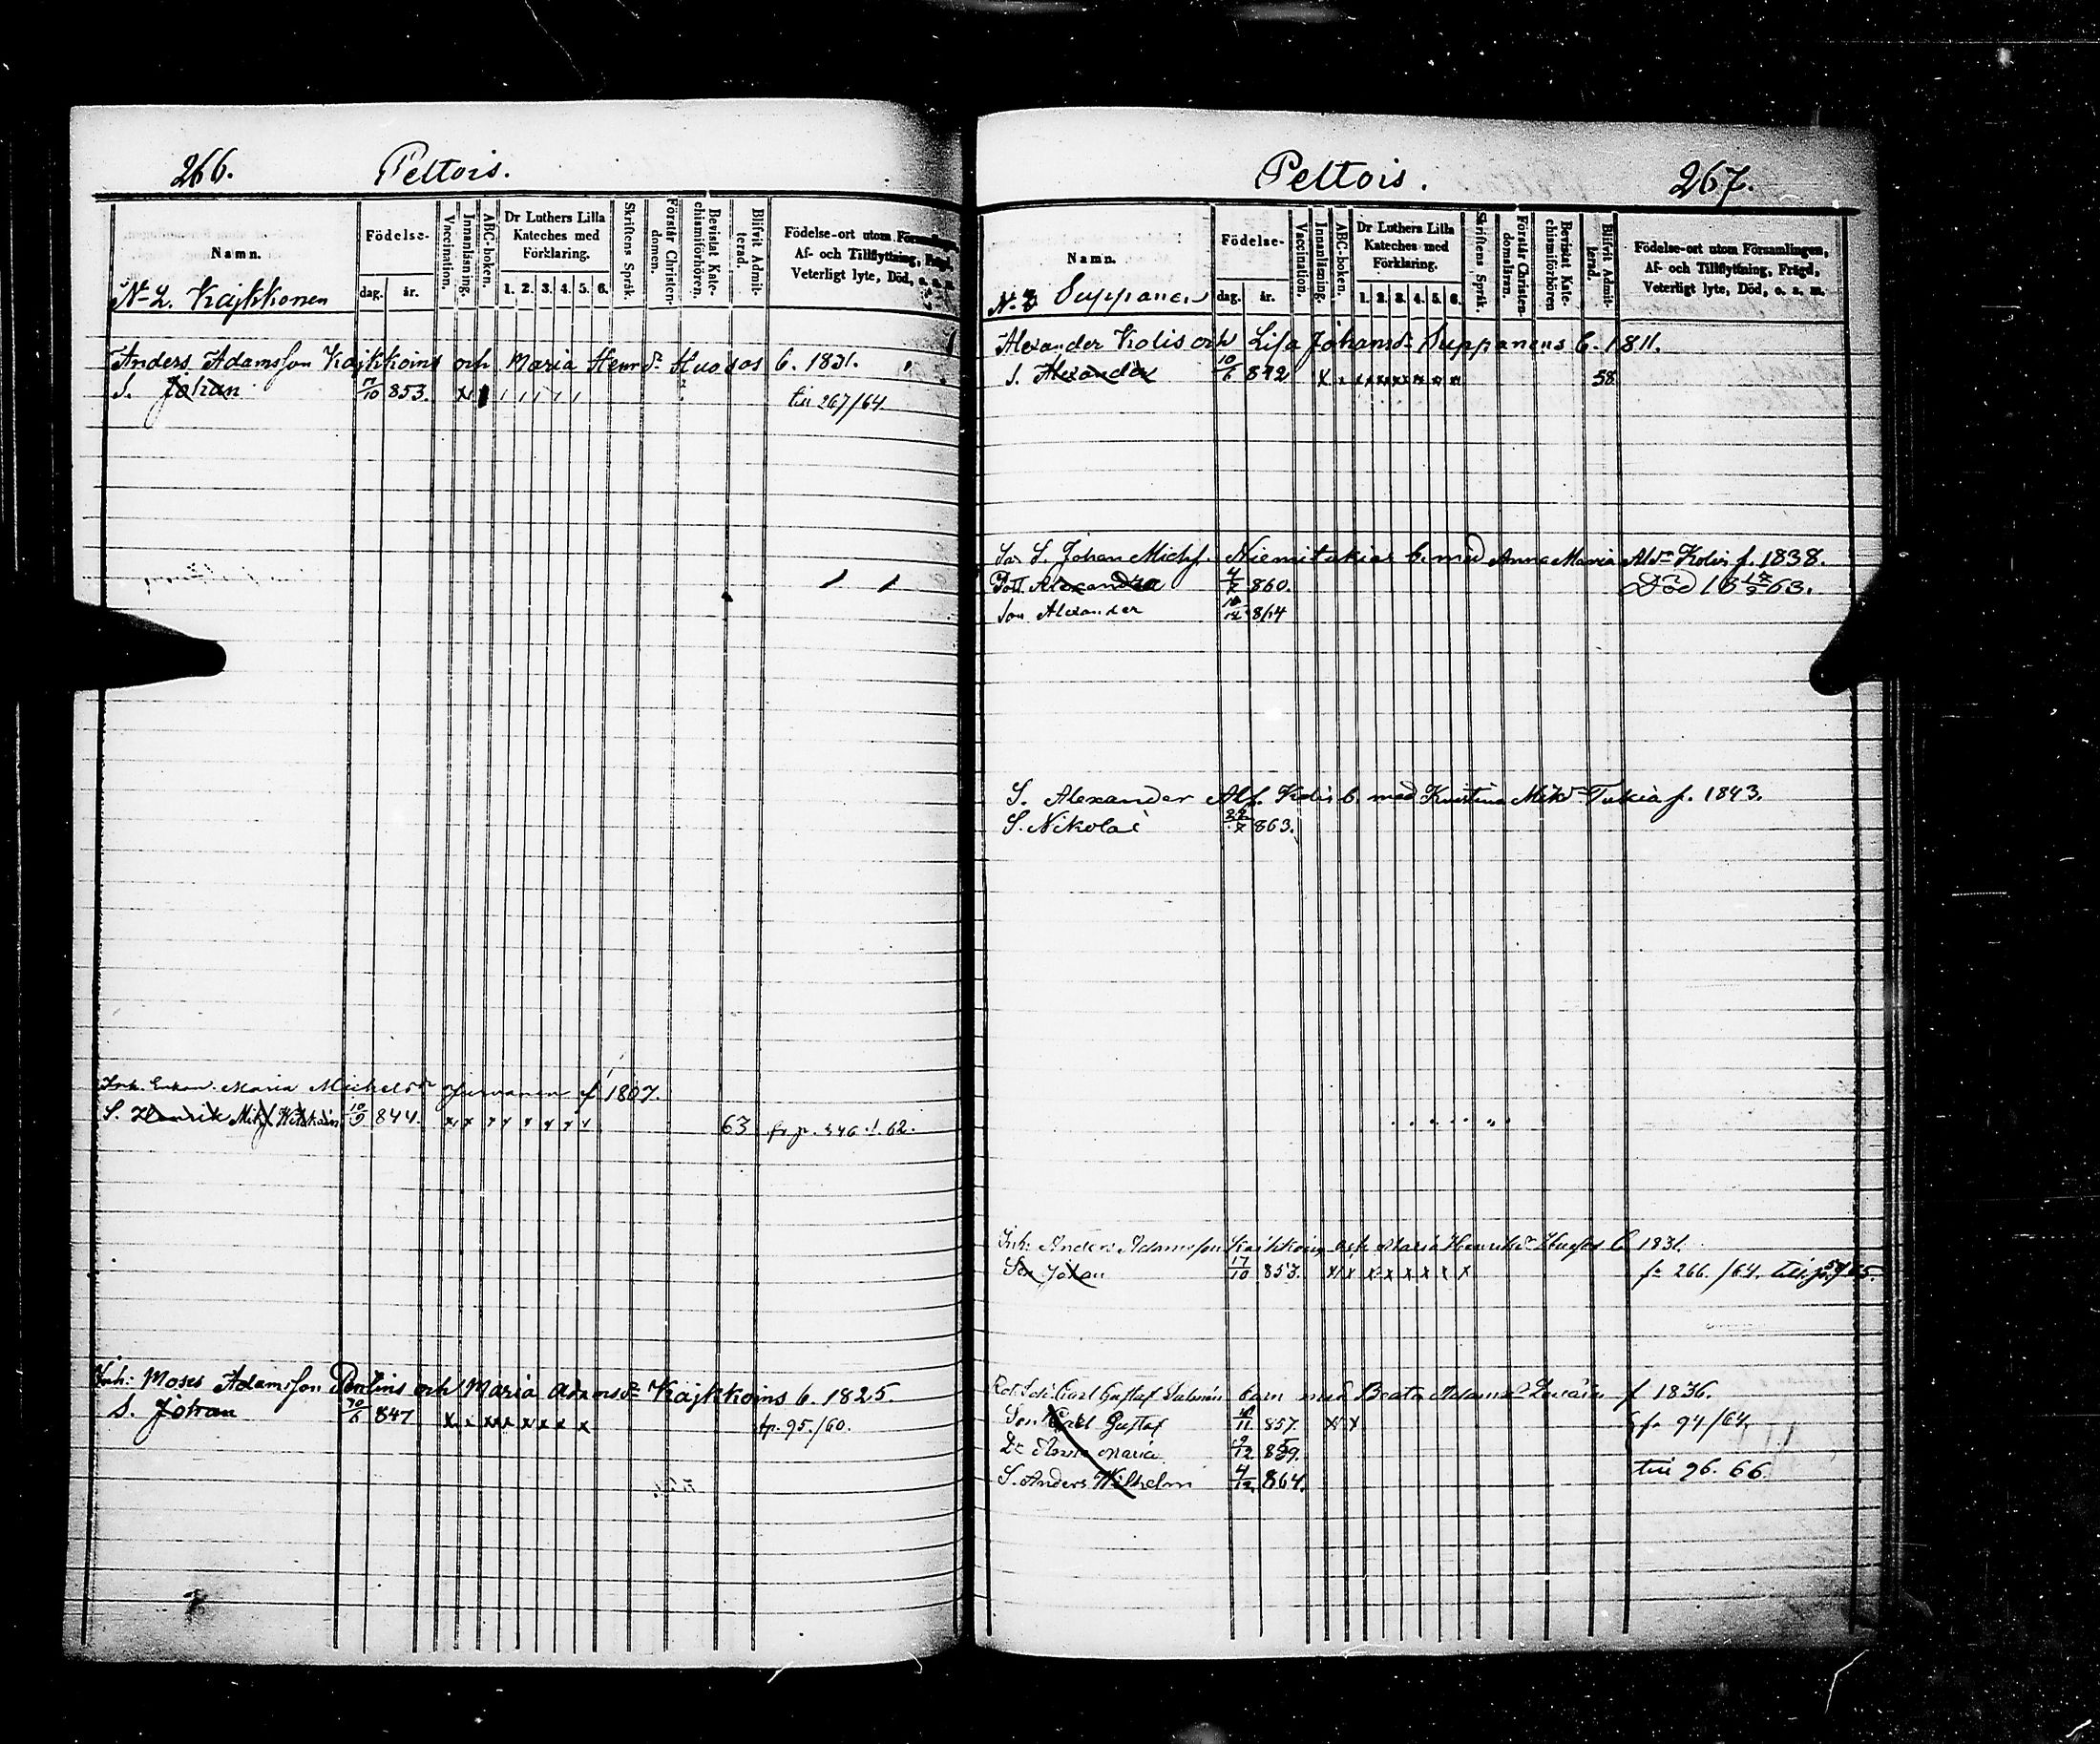 266. Peltois.
Namn.
Födelse-
dag. år.
Vaccination.
Innanläsning.
ABC-boken.
Dr Luthers Lilla
Kateches med
Förklaring.
1. 2. 3. 4. 5. 6.
Skriftens Språk.
Förstår Christen-
domen.
Bevistat Kate-
chismiförhören.
Blifvit Admit-
terad.
Födelse-ort utom Församlingen,
Af- och Tillflyttning, Frägd,
Veterligt lyte, Död, o. s. m.
No 2. Kajkkonen
Anders Adamsson Kajkkoins och Maria Henrdr b. 1831.
S. Johan 17/10 853. till 267/64.
Maria Michelsdr f 1807.
S. Henrik 10/9 844. 63 fr p. 62.
Inh: Moses Adamsson och Maria Adamsdr Kajkkoins b. 1825.
S. Johan 847 fr p. 95./60.
Peltois. 267.
Namn.
Födelse-
dag. år.
Vaccination.
Innanläsning.
ABC-boken.
Dr Luthers Lilla
Kateches med
Förklaring.
1. 2. 3. 4. 5. 6.
Skriftens Språk.
Förstår Christen-
domsläran.
Bevistat Kate-
chismiförhören
Blifvit Admit-
terad.
Födelse-ort utom Församlingen,
Af- och Tillflyttning, Frägd,
Veterligt lyte, Död, o. s. m.
No 3 Suppanen
Alexander Kolis och Lisa Johansdr Suppanens b. 1811.
S. Alexander 10/6 842 58
S. Johan Michf. Niemi tukias b. med Anna Maria Alxdr Kolis f. 1838.
Dott. Alexandra 860. Död 63.
Son Alexander 864
S. Alexander Alf. Kolis b. med Kristina Mikdr Tukia f. 1843.
S. Nikolai 863.
Inh: Anders Adamsson Kaikkoins och Maria Henriksdr b 1831.
Son Johan 17/10 853. fr 266./64. till p. 65.
Carl Gustaf barn med Beata Adamsdr f 1836.
Son Karl Gustaf 857. fr 94/64.
Dr Anna Maria 9/12 859.
S. Anders Wilhelm 4/12 864. till 96. 66.